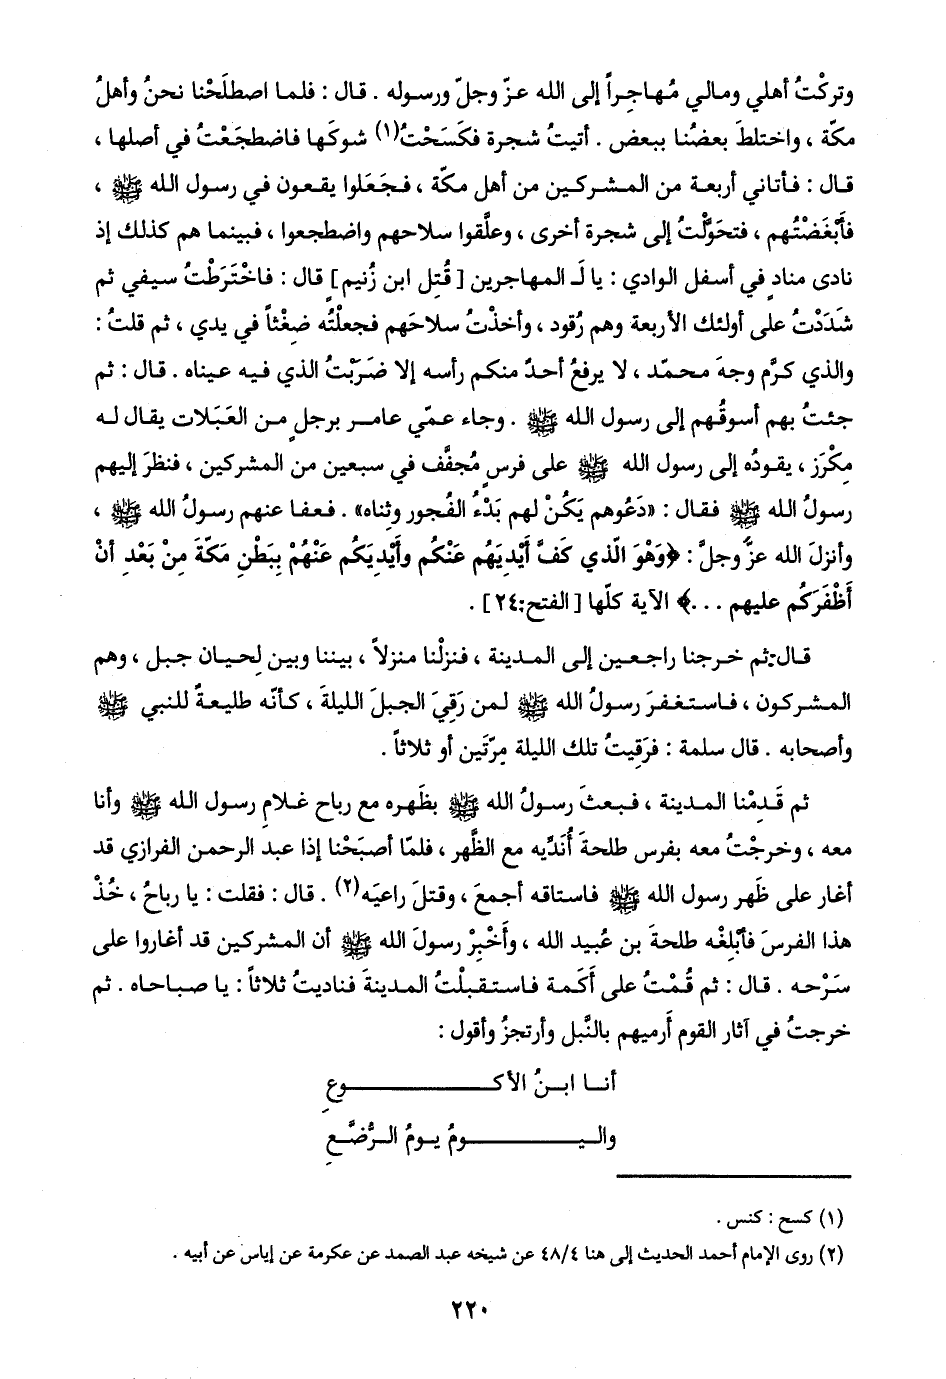 وتركْتُ أهلي ومالي مُهاجراً إلى الله عزّ وجلّ ورسوله . قال : فلما اصطلَحْنا نحنُ وأهلُ
مكّة ، واختلطَ بعضُنا ببعض . أتيتُ شجرة فكَسَحْتُ(١) شوكَها فاضطجَعْتُ في أصلها ،
قال : فأتاني أربعة من المشركين من أهل مكّة ، فجَعَلوا يقعون في رسول الله ﷺ ،
فأَبْغَضْتُهم ، فتحَوَّلْتُ إلى شجرة أخرى ، وعلَّقوا سلاحهم واضطجعوا ، فبينما هم كذلك إذ
نادى منادٍ في أسفل الوادي : يا لَـ المهاجرين [ قُتِل ابن زُنيم ] قال : فاخْتَرَطْتُ سيفي ثم
شَدَدْتُ على أولئك الأربعة وهم رُقود ، وأخذْتُ سلاحَهم فجعلْتُه ضِغْثاً في يدي ، ثم قلتُ :
والذي كرَّم وجهَ محمّد ، لا يرفعُ أحدٌ منكم رأسه إلا ضَرَبْتُ الذي فيه عيناه . قال : ثم
جئتُ بهم أسوقُهم إلى رسول الله ﷺ . وجاء عمّي عامر برجلٍ من العَبَلات يقال له
مِكْرَز ، يقودُه إلى رسول الله ﷺ على فرسٍ مُجفَّف في سبعين من المشركين ، فنظرَ إليهم
رسولُ الله ﷺ فقال : «دَعُوهم يَكُنْ لهم بَدْءُ الفُجور وثناه» . فعفا عنهم رسولُ الله ﷺ ،
وأنزلَ الله عزَّ وجلَّ : ﴿وَهْوَ الّذي كَفَّ أَيْديَهُم عَنْكُم وأَيْديَكُم عَنْهُمْ بِبَطْنِ مَكّةَ مِنْ بَعْدِ أنْ
أَظْفَرَكُم عليهم ...﴾ الآية كلّها [الفتح:٢٤] .
قال:ثم خرجنا راجعين إلى المدينة ، فنزلْنا منزلاً ، بيننا وبين لِحيان جبل ، وهم
المشركون ، فاستغفرَ رسولُ الله ﷺ لمن رَقِيَ الجبلَ الليلةَ ، كأنّه طليعةٌ للنبي ﷺ
وأصحابه . قال سلمة : فرَقِيتُ تلك الليلة مرّتَين أو ثلاثاً .
ثم قَدِمْنا المدينة ، فبعثَ رسولُ الله ﷺ بظَهره مع رباح غلامِ رسول الله ﷺ وأنا
معه ، وخرجْتُ معه بفرس طلحةَ أُنَدِّيه مع الظَّهر ، فلمّا أصبَحْنا إذا عبد الرحمن الفزاري قد
أغار على ظَهر رسول الله ﷺ فاستاقه أجمعَ ، وقتلَ راعيَه(٢) . قال : فقلت : يا رباحُ ، خُذْ
هذا الفرسَ فأَبْلِغْه طلحةَ بن عُبيد الله ، وأَخْبِرْ رسولَ الله ﷺ أن المشركين قد أغاروا على
سَرْحه . قال : ثم قُمْتُ على أَكَمة فاستقبلْتُ المدينةَ فناديتُ ثلاثاً : يا صباحاه . ثم
خرجتُ في آثار القوم أَرميهم بالنَّبل وأرتجزُ وأقول :
أنا ابنُ الأكوعِ
واليومُ يومُ الرُّضَّعِ
(١) كسح : كنس .
(٢) روى الإمام أحمد الحديث إلى هنا ٤٨/٤ عن شيخه عبد الصمد عن عكرمة عن إياس عن أبيه .
٢٢٠